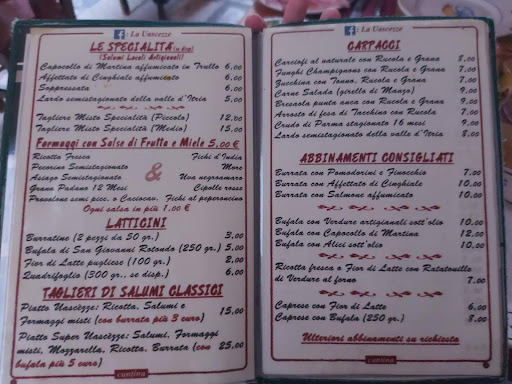 : La Nascezze
LE SPECIALITA' (in disp)
(Salumi Locali Artigianali)
Capocollo di Martina affumicato in Trullo 6,00
Affettato di Cinghiale affumicato 6,00
Soppressata 6,00
Lardo semistagionato della valle d'Itria 5,00
Tagliere Misto Specialità (Piccolo) 12,00
Tagliere Misto Specialità (Medio) 15,00
Formaggi con Salse di Frutta e Miele 5,00 €
Ricotta Fresca Fichi d'India
Pecorino Semistagionato More
Asiago Semistagionato & Uva negroamaro
Grana Padano 12 Mesi Cipolle rosse
Provolone semi picc. o Caciocav. Fichi al peperoncino
Ogni salsa in più 1,00 €
LATTICINI
Burratine (2 pezzi da 50 gr.) 3,00
Bufala di San Giovanni Rotondo (250 gr.) 5,00
Fior di Latte pugliese (100 gr.) 2,00
Quadrifoglio (300 gr.. se disp.) 6,00
TAGLIERI DI SALUMI CLASSICI
Piatto Nascèzze: Ricotta, Salumi e 15,00
Formaggi misti (con burrata più 3 euro)
Piatto Super Nascèzze: Salumi, Formaggi
misti, Mozzarella, Ricotta, Burrata (con 25,00
bufala più 5 euro)
cantina
: La Nascezze
CARPACCI
Carciofi al naturale con Rucola e Grana 8,00
Funghi Champignons con Rucola e Grana 7,00
Zucchine con Tonno, Rucola e Grana 7,00
Carne Salada (girello di Manzo) 9,00
Bresaola punta anca con Rucola e Grana 9,00
Arrosto di fesa di Tacchino con Rucola 7,00
Crudo di Parma stagionato 16 mesi 9,00
Lardo semistagionato della valle d'Itria 8,00
ABBINAMENTI CONSIGLIATI
Burrata con Pomodorini e Finocchio 7,00
Burrata con Affettato di Cinghiale 10,00
Burrata con Salmone affumicato 10,00
Bufala con Verdure artigianali sott'olio 10,00
Bufala con Capocollo di Martina 12,00
Bufala con Alici sott'olio 10,00
Ricotta fresca o Fior di Latte con Ratatouille
di Verdure al forno 7,00
Caprese con Fior di Latte 6,00
Caprese con Bufala (250 gr.) 8,00
Ulteriori abbinamenti su richiesta
cantina